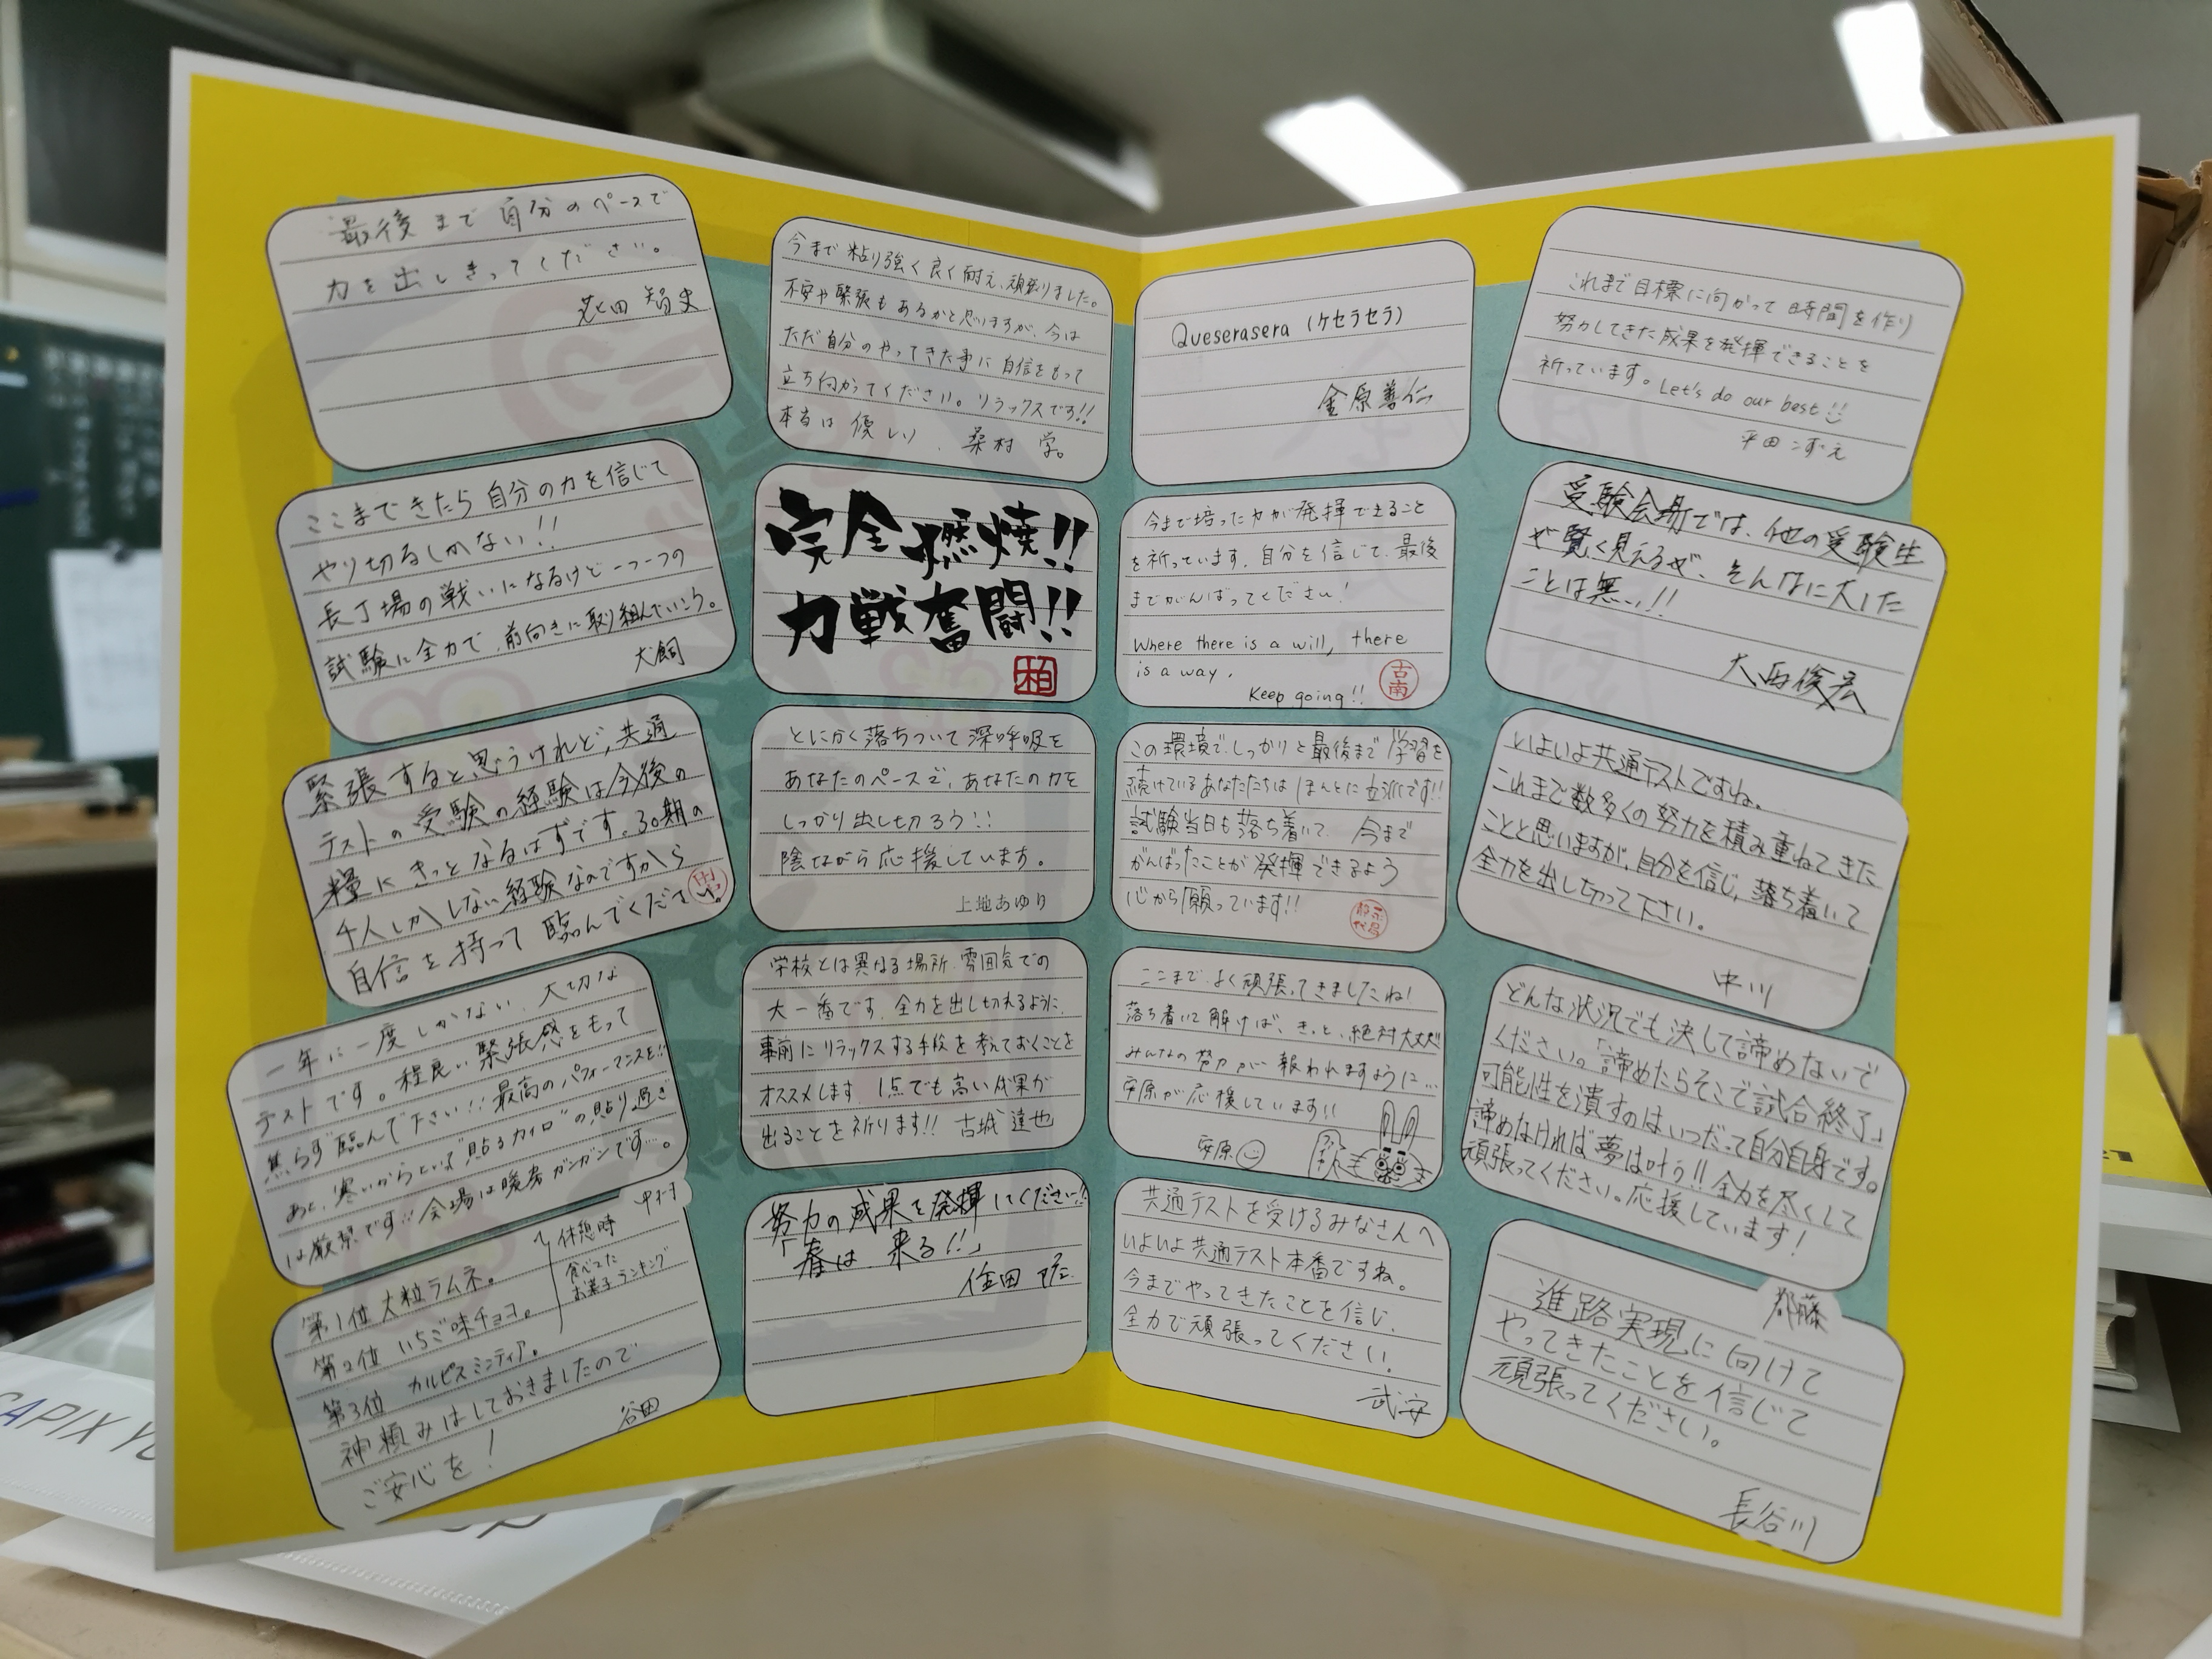 最後まで自分のペースで
力を出しきってください。
智史
ここまできたら自分の力を信じて
やり切るしかない!!
長丁場の戦いになるけど一つ一つの
試験に全力で、前向きに取り組んでいこう。
犬飼
緊張すると思うけれど、共通
テストの受験の経験は今後の
糧にきっとなるはずです。30期の
4人しかしない経験なのですから
自信を持って臨んでください。
一年に一度しかない、大切な
テストです。程良い緊張感をもって
焦らず臨んで下さい!!最高のパフォーマンスを!!
あと、寒いからといって"貼るカイロ"の貼り過ぎ
は厳禁です!!会場は暖房ガンガンです…。
中村
休憩時
食べてた
お菓子ランキング
第1位 大粒ラムネ。
第2位 いちご味チョコ。
第3位 カルピスミンティア。
神頼みはしておきましたので
ご安心を!
谷田
今まで粘り強く良く耐え、頑張りました。
不安や緊張もあるかと思いますが、今は
ただ自分のやってきた事に自信をもって
立ち向かってください。リラックスです!!
本当は優しい、桑村 学。
完全燃焼!!
力戦奮闘!!
柏
とにかく落ちついて深呼吸を
あなたのペースで、あなたの力を
しっかり出し切ろう!!
陰ながら応援しています。
上地あゆり
学校とは異なる場所、雰囲気での
大一番です。全力を出し切れるように、
事前にリラックスする手段を考えておくことを
オススメします 1点でも高い成果が
出ることを祈ります!! 古城 達也
努力の成果を発揮してください!!
「春は、来る!!」
住田
Queserasera (ケセラセラ)
金原善仁
今まで培った力が発揮できること
を祈っています。自分を信じて、最後
までがんばってください!
Where there is a will, there
is a way.
Keep going!!
古南
この環境で、しっかりと最後まで学習を
続けているあなたたちはほんとに立派です!!
試験当日も落ち着いて、今まで
がんばったことが発揮できるよう
心から願っています!!
ここまで、よく頑張ってきましたね!
落ち着いて解けば、きっと、絶対大丈夫
みんなの努力が報われますように…
安原が応援しています!!
安原
共通テストを受けるみなさんへ
いよいよ共通テスト本番ですね。
今までやってきたことを信じ、
全力で頑張ってください。
武安
これまで目標に向かって時間を作り
努力してきた成果を発揮できることを
祈っています。Let's do our best!!
平田こずえ
受験会場では、他の受験生
が賢く見えるが、そんなに大した
ことは無い!!
大西俊宏
いよいよ共通テストですね。
これまで数多くの努力を積み重ねてきた
ことと思いますが、自分を信じ、落ち着いて
全力を出し切って下さい。
中川
どんな状況でも決して諦めないで
ください。「諦めたらそこで試合終了」
可能性を潰すのはいつだって自分自身です。
諦めなければ夢は叶う!!全力を尽くして
頑張ってください。応援しています!
都藤
進路実現に向けて
やってきたことを信じて
頑張ってください。
長谷川